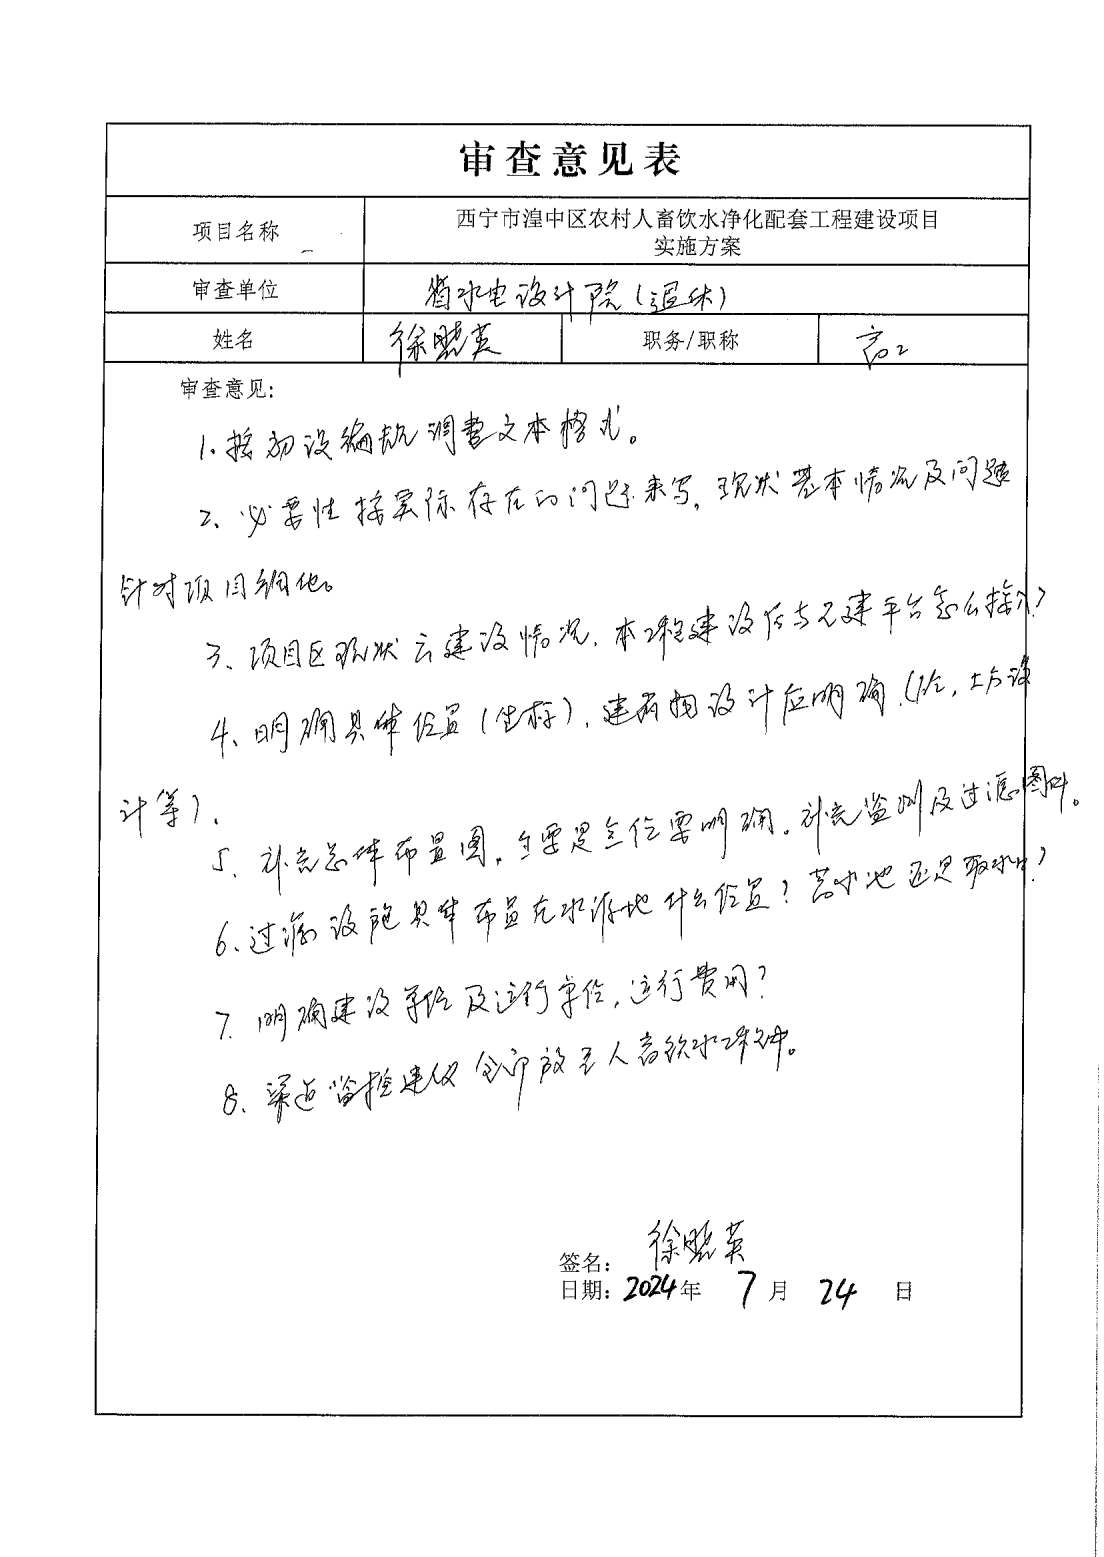 审查意见表
项目名称
西宁市湟中区农村人畜饮水净化配套工程建设项目
实施方案
审查单位
省水电设计院(退休)
姓名
徐晓英
职务/职称
高工
审查意见:
1、按初设编规调整文本格式。
2、必要性按实际存在的问题来写,现状基本情况及问题
针对项目细化。
3、项目区现状已建设情况,本工程建设后与已建平台怎么接入?
4、明确具体位置(坐标),建筑物设计应明确,土方设
计等)。
5、补充总体布置图,主要是全位要明确。补充监测及过滤图叶。
6、过滤设施具体布置在水源地什么位置?蓄水池还是取水口?
7、明确建设单位及运行单位,运行费用?
8、渠道监控建议全部放至人畜饮水工程中。
签名:
徐晓英
日期:2024年 7 月 24 日